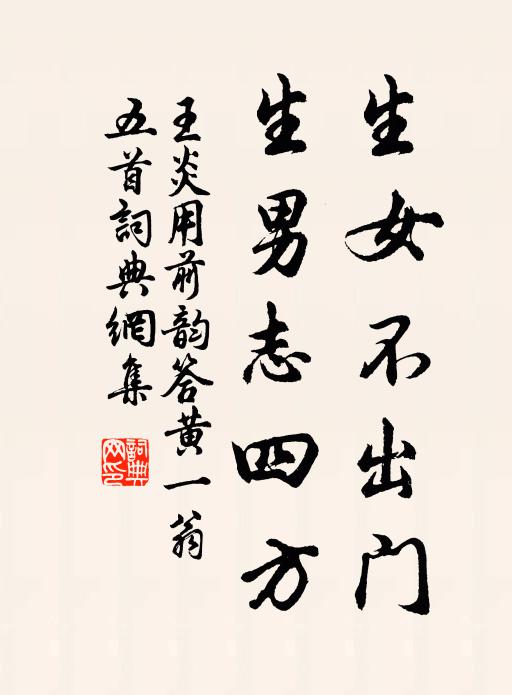 生女不出门
生男志四方
王炎用前韵答黄一翁
五首詞典網集
詞典
网印